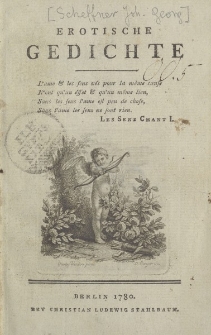 [Scheffner Joh. Georg]
EROTISCHE
GEDICHTE
L'ame & les sens nés pour la même
N'ont qu'un effet & qu'un même lien,
Sans les sens l'ame est peu de chose,
Sans l'ame les sens ne sont rien.
LES SENS CHANT I.
BERLIN 1780.
BEY CHRISTIAN LUDEWIG STAHLBAUM.